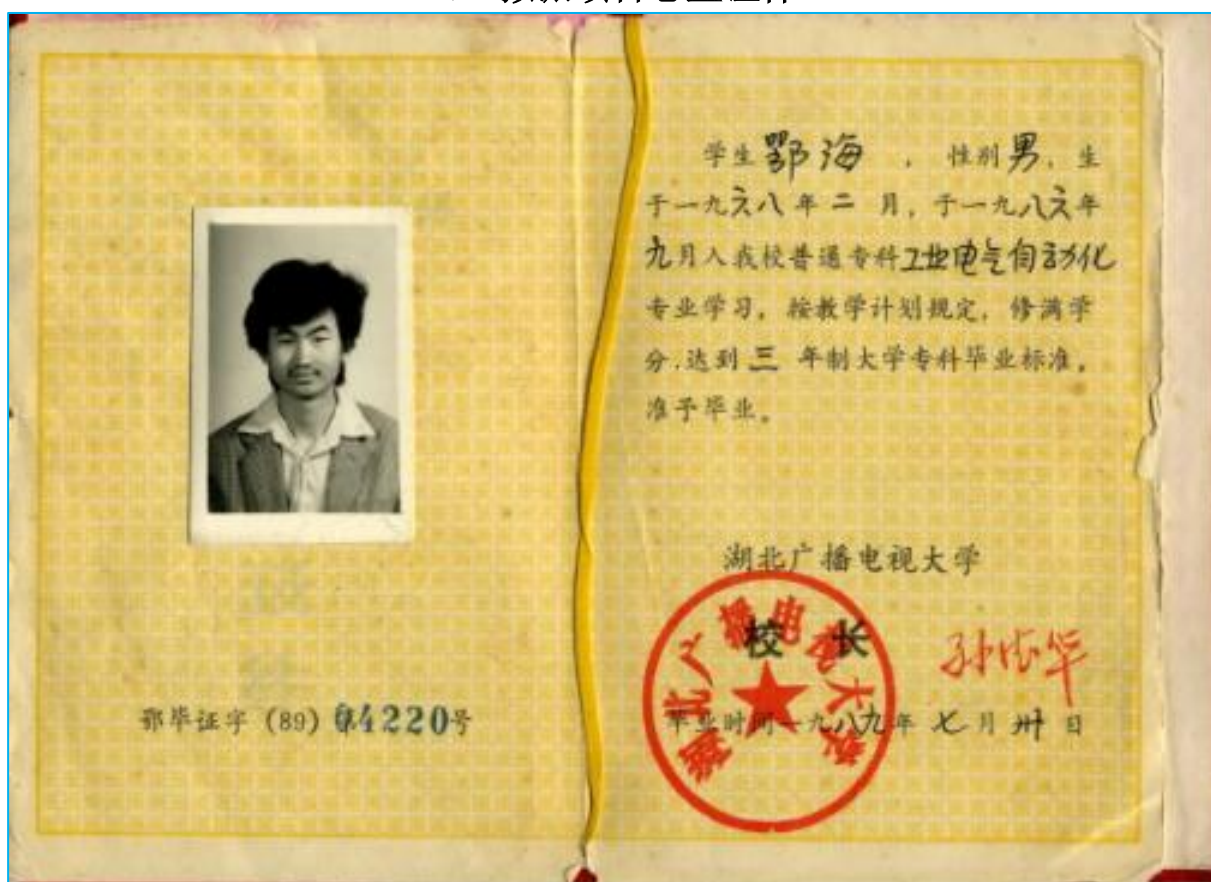 鄂毕证字 (89) 第4220号
学生鄂海 ，性别男，生
于一九六八年二 月，于一九八六年
九月入我校普通专科工业电气自动化
专业学习，按教学计划规定，修满学
分.达到三 年制大学专科毕业标准，
准予毕业。
湖北广播电视大学
校 长
毕业时间一九八九年七月卅日
湖北广播电视大学